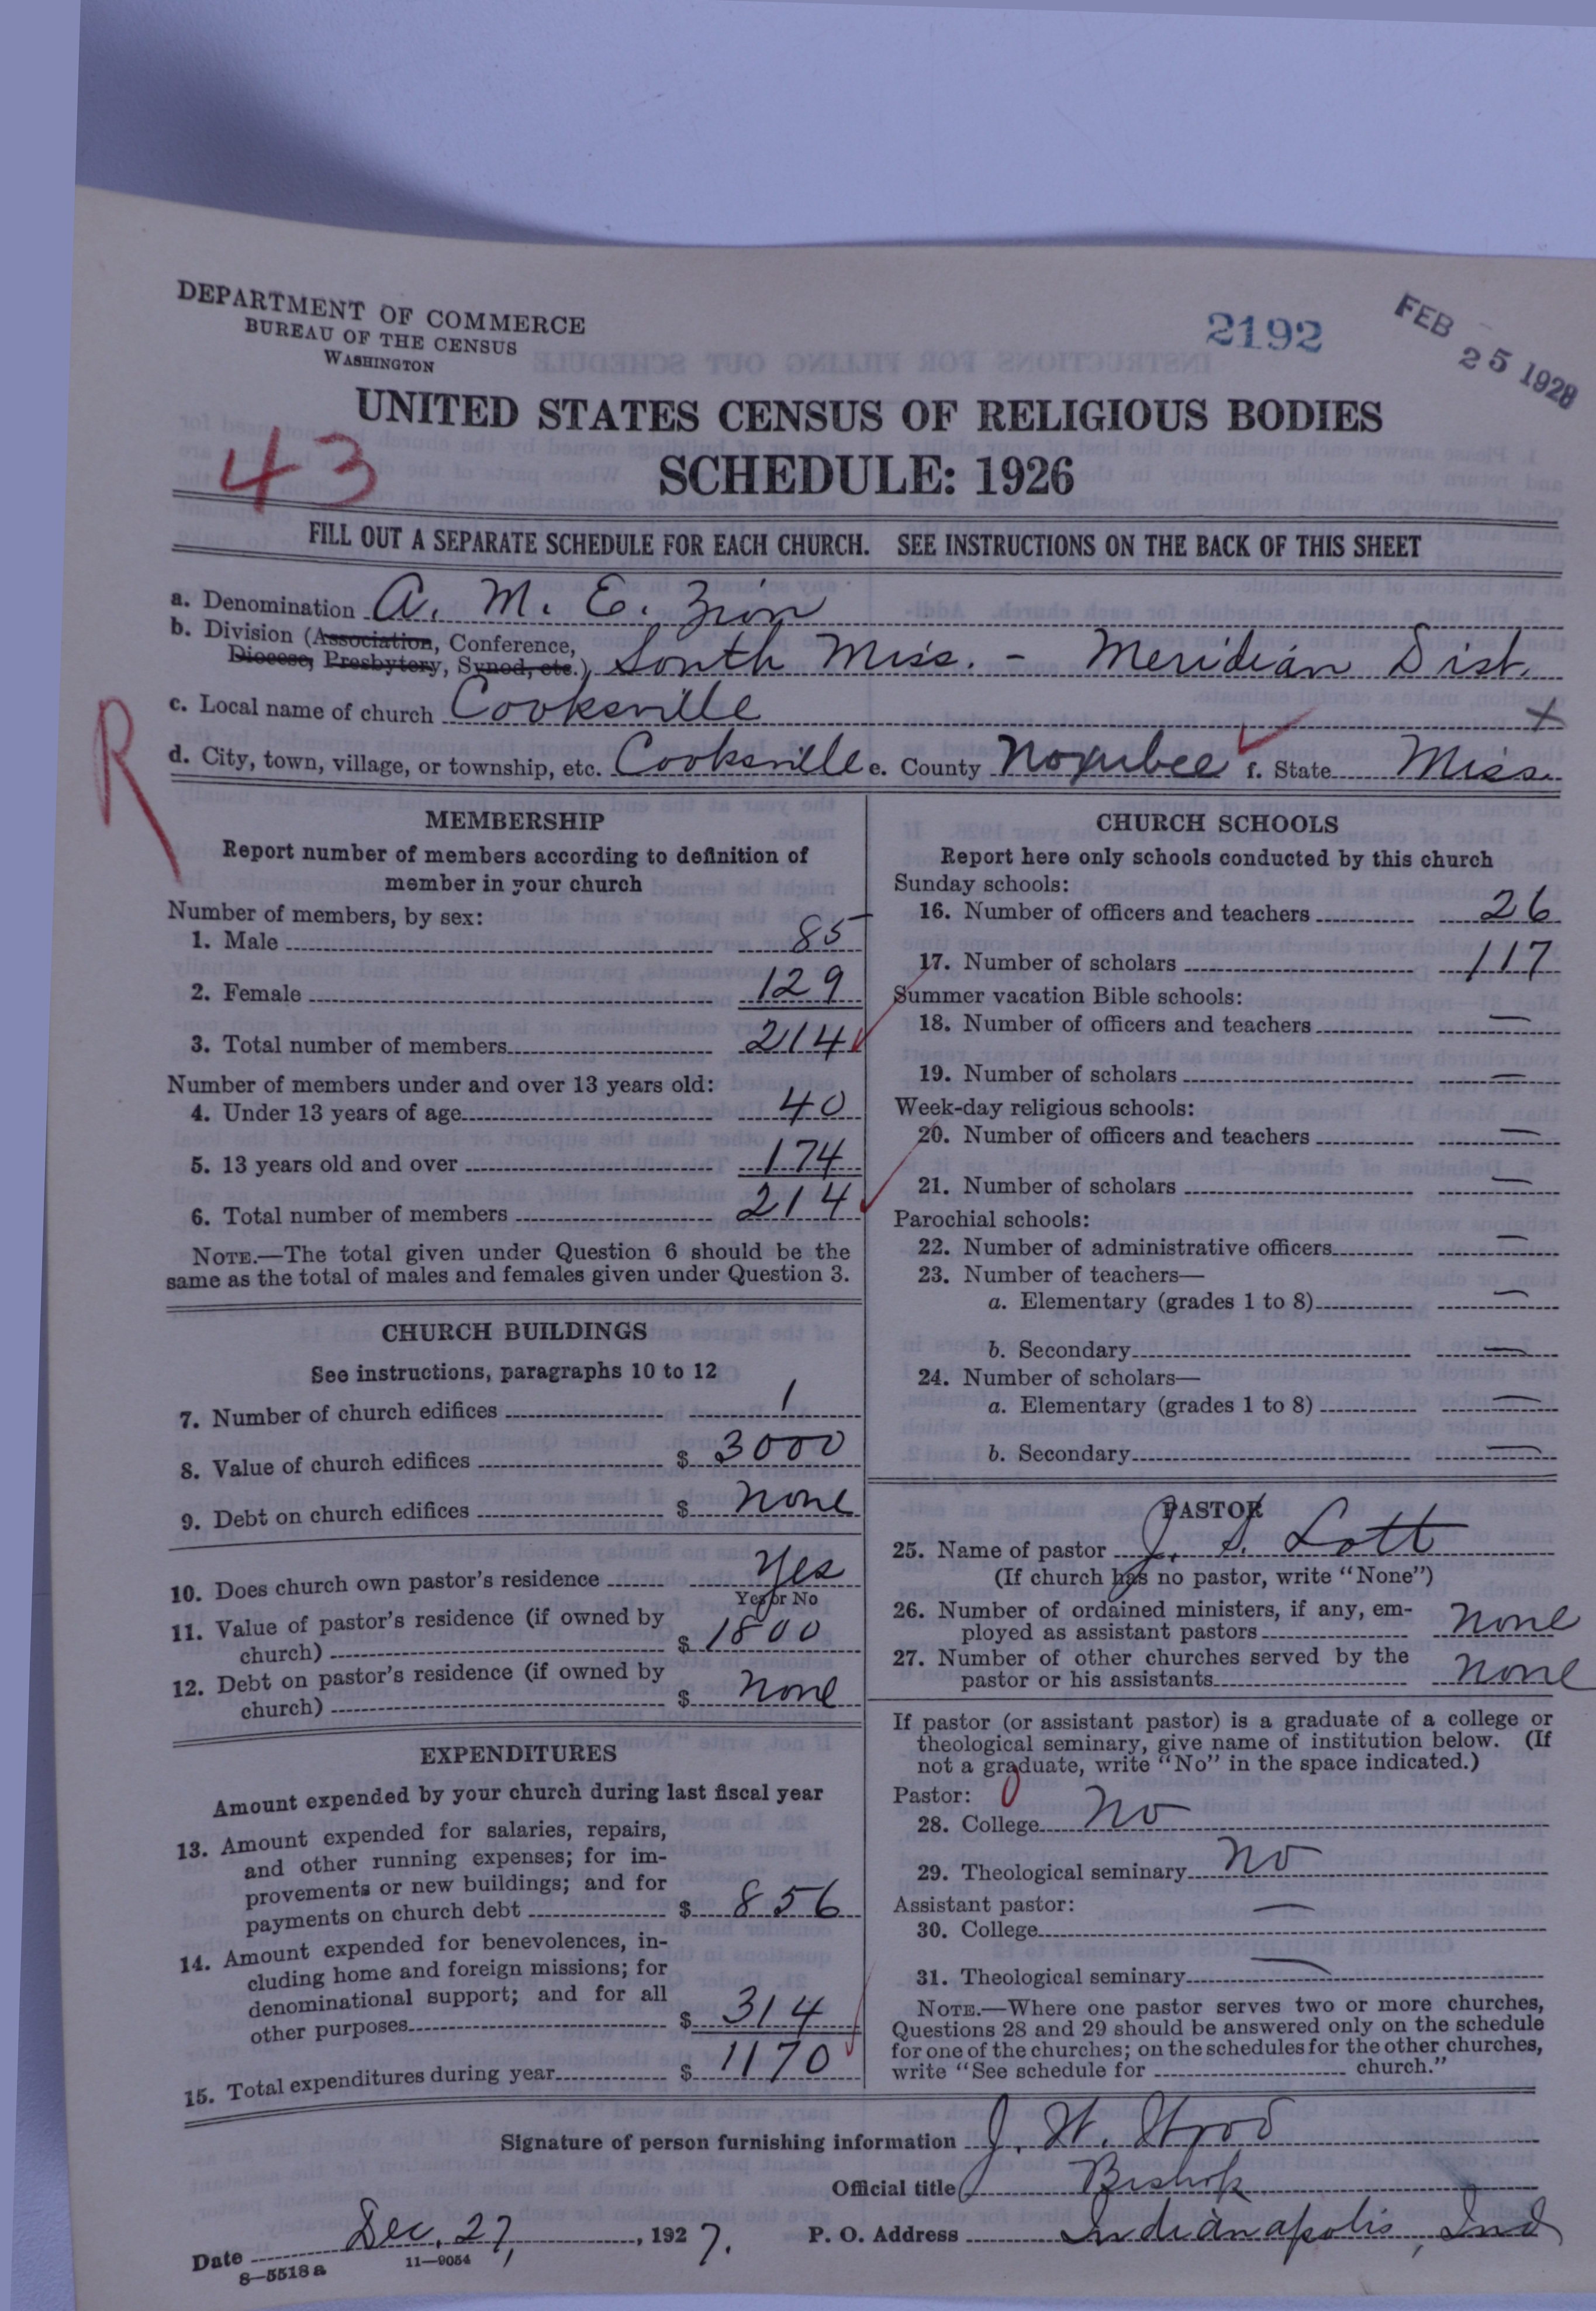 DEPARTMENT OF COMMERCE
BUREAU OF THE CENSUS
WASHINGTON
2192
FEB 25 1928
UNITED STATES CENSUS OF RELIGIOUS BODIES
SCHEDULE: 1926
43
FILL OUT A SEPARATE SCHEDULE FOR EACH CHURCH. SEE INSTRUCTIONS ON THE BACK OF THIS SHEET
a. Denomination A. M. E. Zion
b. Division (Association, Conference,
Diocese, Presbytery, Synod, etc.) South Miss. - Meridian Dist.
c. Local name of church Cooksville X
R
d. City, town, village, or township, etc. Cooksville e. County Noxubee f. State Miss.
MEMBERSHIP
Report number of members according to definition of
member in your church
Number of members, by sex:
1. Male 85
2. Female 129
3. Total number of members 214
Number of members under and over 13 years old:
4. Under 13 years of age 40
5. 13 years old and over 174
6. Total number of members 214
NOTE.—The total given under Question 6 should be the
same as the total of males and females given under Question 3.
CHURCH BUILDINGS
See instructions, paragraphs 10 to 12
7. Number of church edifices 1
8. Value of church edifices $ 3000
9. Debt on church edifices $ none
10. Does church own pastor's residence Yes
Yes or No
11. Value of pastor's residence (if owned by
church) $ 1800
12. Debt on pastor's residence (if owned by
church) $ none
EXPENDITURES
Amount expended by your church during last fiscal year
13. Amount expended for salaries, repairs,
and other running expenses; for im-
provements or new buildings; and for
payments on church debt $ 856
14. Amount expended for benevolences, in-
cluding home and foreign missions; for
denominational support; and for all
other purposes $ 314
15. Total expenditures during year $ 1170
CHURCH SCHOOLS
Report here only schools conducted by this church
Sunday schools:
16. Number of officers and teachers 26
17. Number of scholars 117
Summer vacation Bible schools:
18. Number of officers and teachers —
19. Number of scholars —
Week-day religious schools:
20. Number of officers and teachers —
21. Number of scholars —
Parochial schools:
22. Number of administrative officers —
23. Number of teachers—
a. Elementary (grades 1 to 8) —
b. Secondary —
24. Number of scholars—
a. Elementary (grades 1 to 8) —
b. Secondary —
PASTOR
25. Name of pastor J. S. Lott
(If church has no pastor, write "None")
26. Number of ordained ministers, if any, em-
ployed as assistant pastors none
27. Number of other churches served by the
pastor or his assistants none
If pastor (or assistant pastor) is a graduate of a college or
theological seminary, give name of institution below. (If
not a graduate, write "No" in the space indicated.)
Pastor:
28. College No
29. Theological seminary no
Assistant pastor:
30. College —
31. Theological seminary —
NOTE.—Where one pastor serves two or more churches,
Questions 28 and 29 should be answered only on the schedule
for one of the churches; on the schedules for the other churches,
write "See schedule for church."
Signature of person furnishing information J. W. Wood
Official title Bishop
Date Dec. 27, 1927. P. O. Address Indianapolis, Ind
8—5518a 11—9054